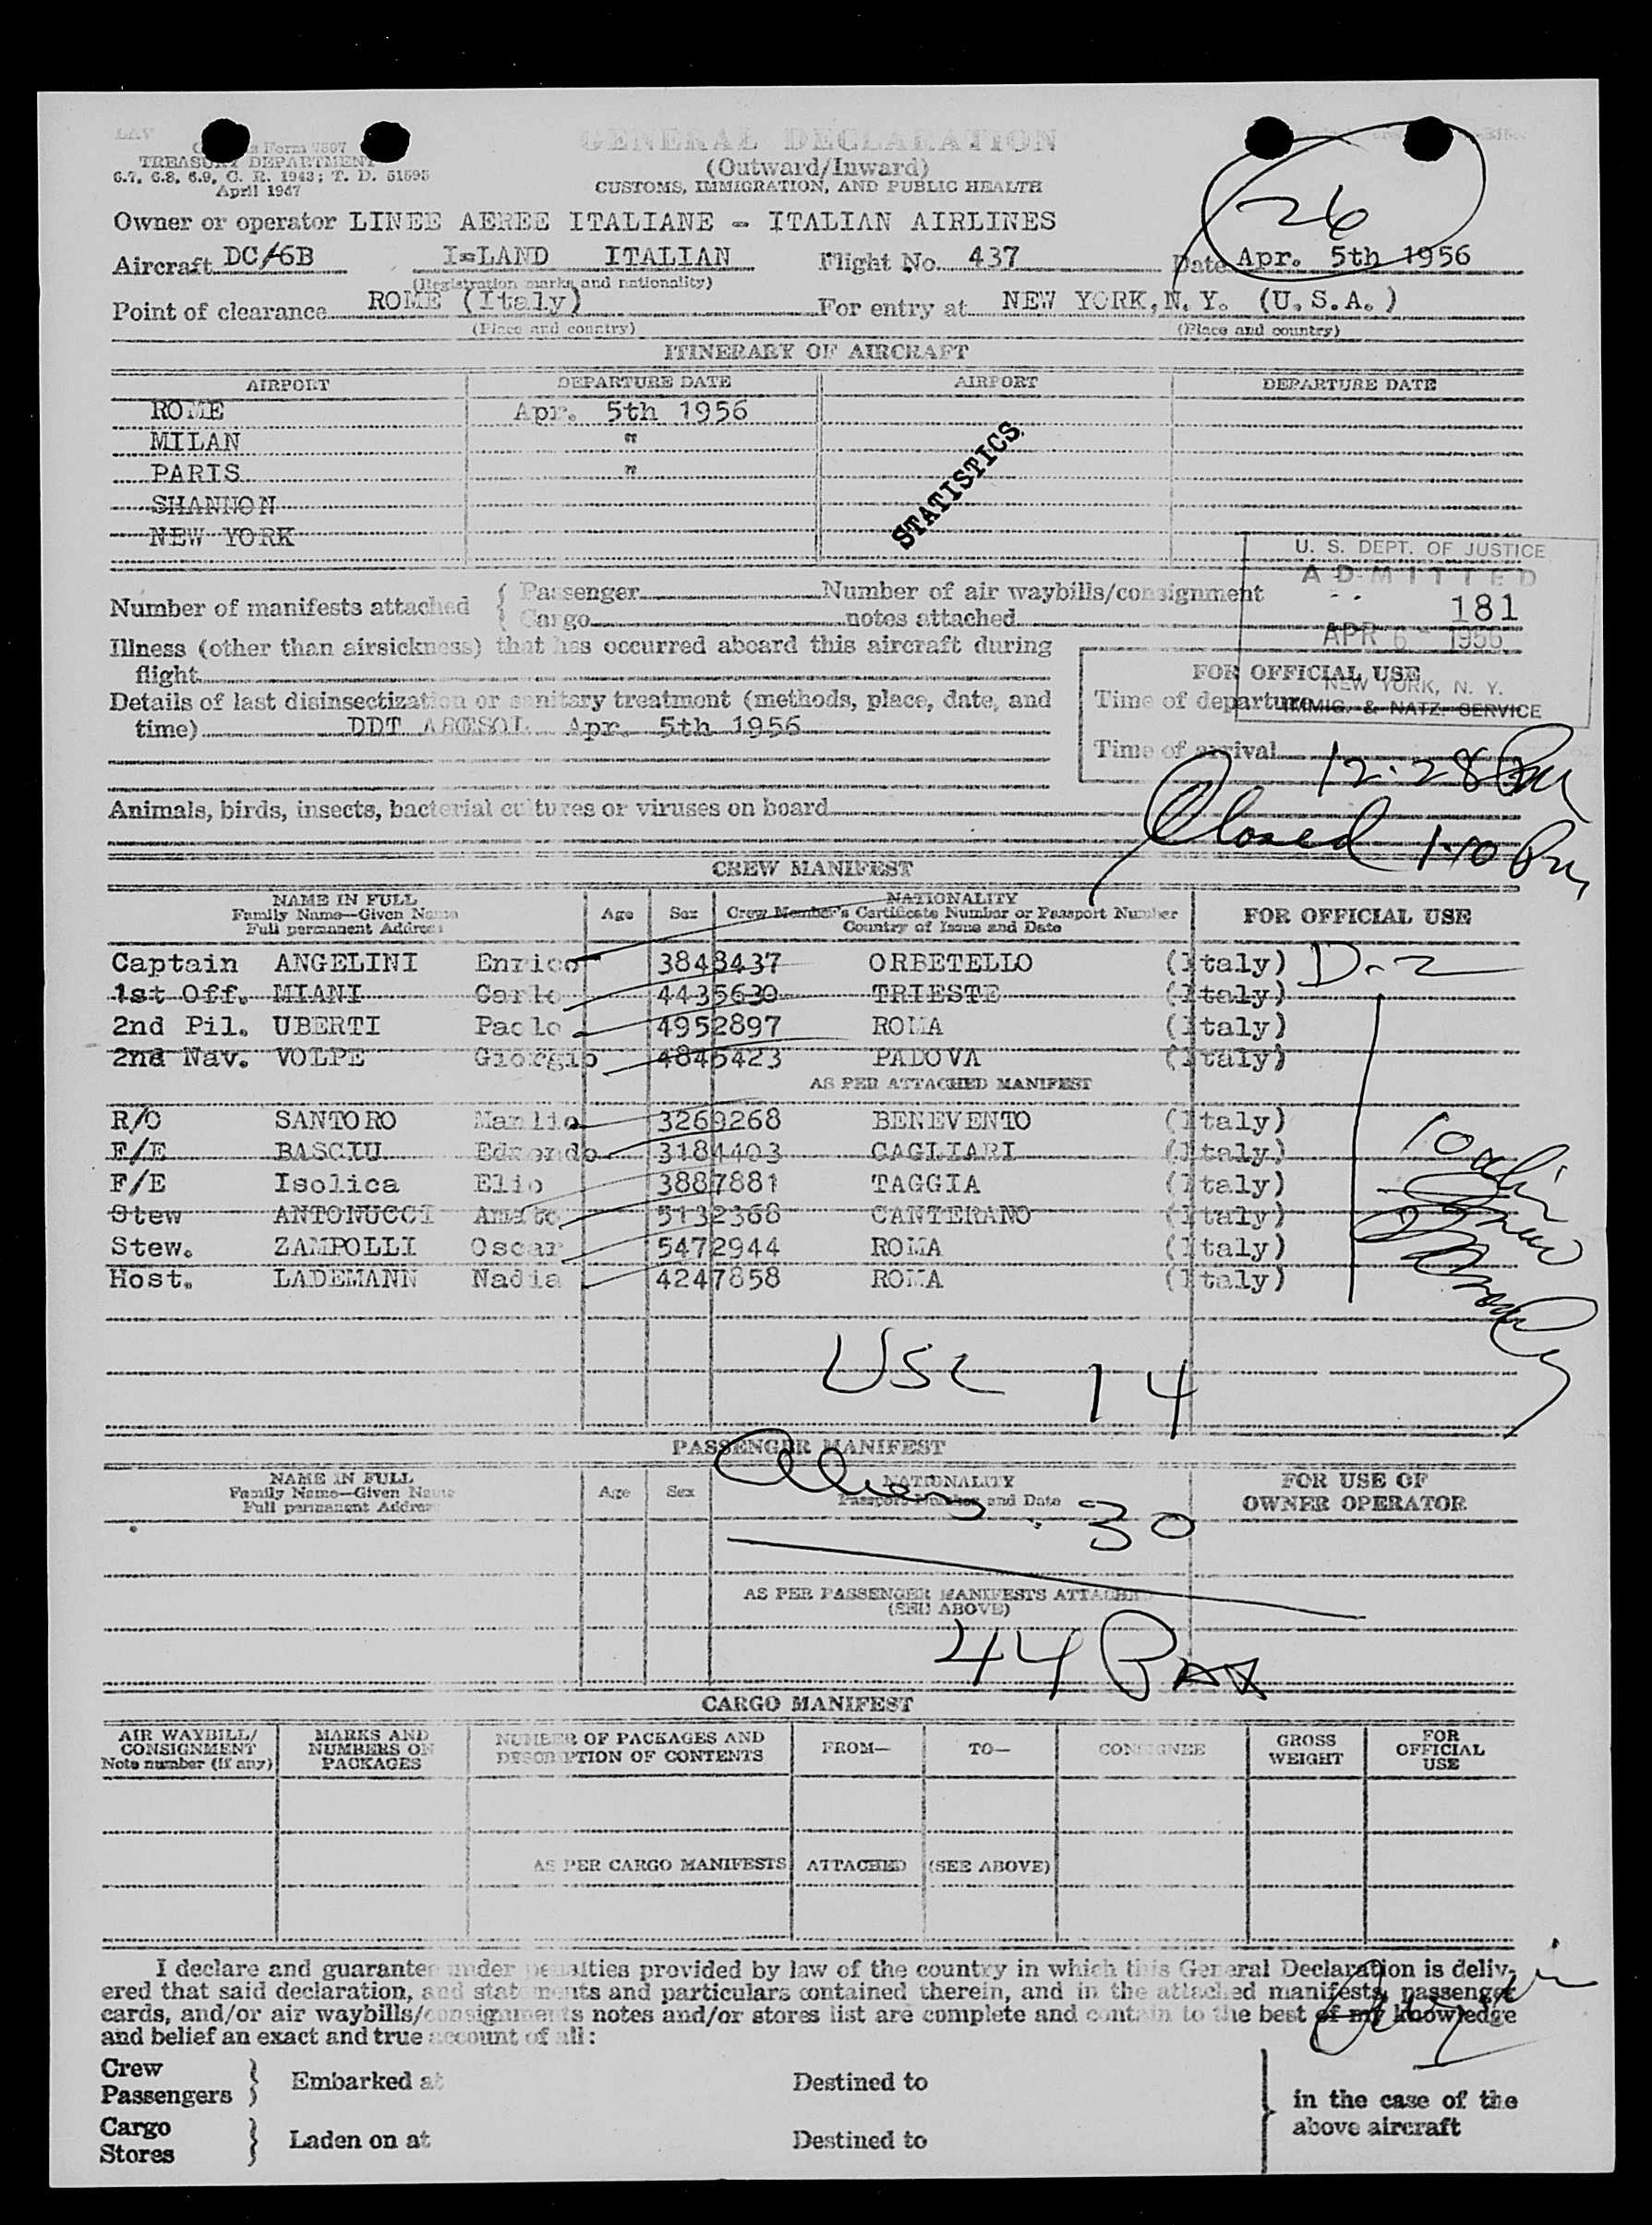 LAV
s Form 7507
TREASURY DEPARTMENT
6.7, 6.8, 6.9, C. R. 1943; T. D. 51595
April 1947
GENERAL DECLARATION
(Outward/Inward)
CUSTOMS, IMMIGRATION, AND PUBLIC HEALTH
26
Owner or operator LINEE AEREE ITALIANE - ITALIAN AIRLINES
Aircraft DC/6B I-LAND ITALIAN Flight No. 437 Date Apr. 5th 1956
(Registration marks and nationality)
Point of clearance ROME (Italy) For entry at NEW YORK, N. Y. (U.S.A.)
(Place and country) (Place and country)
ITINERARY OF AIRCRAFT
AIRPORT DEPARTURE DATE AIRPORT DEPARTURE DATE
ROME Apr. 5th 1956
MILAN "
PARIS "
SHANNON
NEW YORK
STATISTICS
U. S. DEPT. OF JUSTICE
ADMITTED
181
APR 6 - 1956
NEW YORK, N. Y.
IMMIG. & NATZ. SERVICE
Number of manifests attached { Passenger Number of air waybills/consignment
Cargo notes attached
Illness (other than airsickness) that has occurred aboard this aircraft during
flight
Details of last disinsectization or sanitary treatment (methods, place, date, and
time) DDT AROESOL Apr. 5th 1956
FOR OFFICIAL USE
Time of departure
Time of arrival 12:28 Pm
Closed 1:10 Pm
Animals, birds, insects, bacterial cultures or viruses on board
CREW MANIFEST
NAME IN FULL
Family Name—Given Name
Full permanent Address
Age Sex
NATIONALITY
Crew Member's Certificate Number or Passport Number
Country of Issue and Date
FOR OFFICIAL USE
Captain ANGELINI Enrico 3848437 ORBETELLO (Italy) D-2
1st Off. MIANI Carlo 4435630 TRIESTE (Italy)
2nd Pil. UBERTI Paolo 4952897 ROMA (Italy)
2nd Nav. VOLPE Giorgio 4845423 PADOVA (Italy)
AS PER ATTACHED MANIFEST
R/O SANTORO Manlio 3269268 BENEVENTO (Italy)
F/E BASCIU Edmondo 3184403 CAGLIARI (Italy)
F/E Isolica Elio 3887881 TAGGIA (Italy)
Stew ANTONUCCI Amato 5132368 CANTERANO (Italy)
Stew. ZAMPOLLI Oscar 5472944 ROMA (Italy)
Host. LADEMANN Nadia 4247858 ROMA (Italy)
10 alien
crew
USC 14
PASSENGER MANIFEST
NAME IN FULL
Family Name—Given Name
Full permanent Address
Age Sex
NATIONALITY
Passport Number and Date
FOR USE OF
OWNER OPERATOR
Aliens - 30
AS PER PASSENGER MANIFESTS ATTACHED
(SEE ABOVE)
44 Pax
CARGO MANIFEST
AIR WAYBILL/
CONSIGNMENT
Note number (if any)
MARKS AND
NUMBERS ON
PACKAGES
NUMBER OF PACKAGES AND
DESCRIPTION OF CONTENTS
FROM— TO— CONSIGNEE
GROSS
WEIGHT
FOR
OFFICIAL
USE
AS PER CARGO MANIFESTS ATTACHED (SEE ABOVE)
I declare and guarantee under penalties provided by law of the country in which this General Declaration is deliv-
ered that said declaration, and statements and particulars contained therein, and in the attached manifests, passenger
cards, and/or air waybills/consignments notes and/or stores list are complete and contain to the best of my knowledge
and belief an exact and true account of all:
Crew
Passengers } Embarked at Destined to
Cargo
Stores } Laden on at Destined to
in the case of the
above aircraft